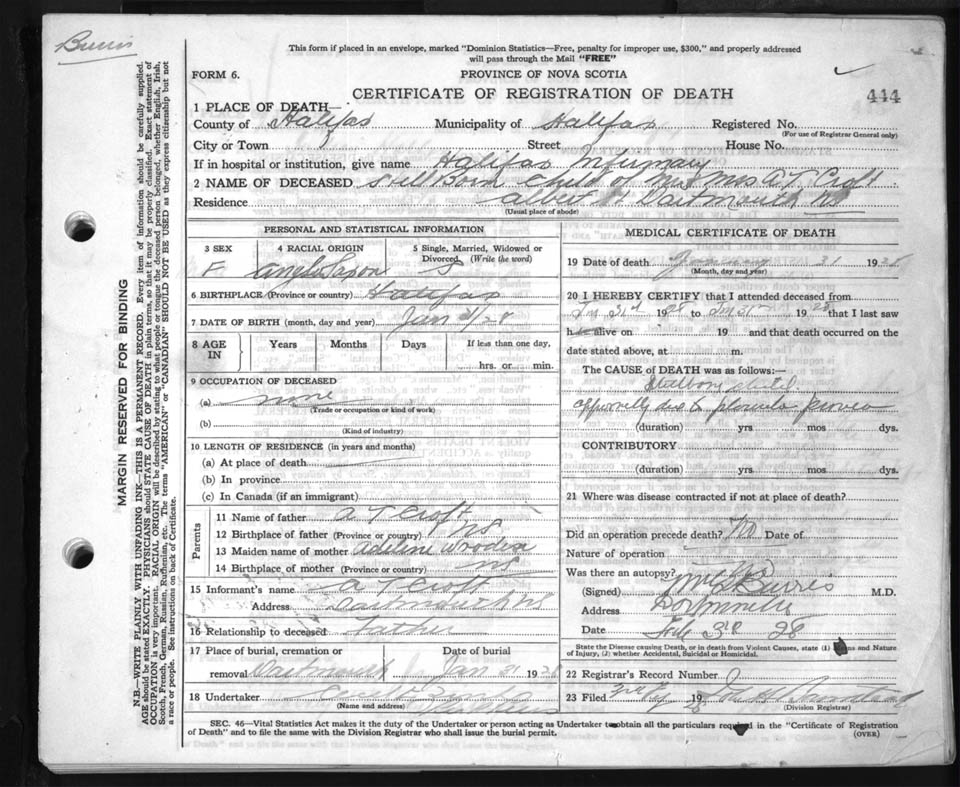 Burris
This form if placed in an envelope, marked "Dominion Statistics—Free, penalty for improper use, $300," and properly addressed
will pass through the Mail "FREE"
FORM 6.
PROVINCE OF NOVA SCOTIA
CERTIFICATE OF REGISTRATION OF DEATH
444
1 PLACE OF DEATH—
County of Halifax Municipality of Halifax Registered No.
(For use of Registrar General only)
City or Town Street House No.
If in hospital or institution, give name Halifax Infirmary
2 NAME OF DECEASED Still Born Child of Mr Mrs A T Croft
Residence Albert St Dartmouth NS
(Usual place of abode)
PERSONAL AND STATISTICAL INFORMATION
3 SEX 4 RACIAL ORIGIN 5 Single, Married, Widowed or
Divorced (Write the word)
F Anglo Saxon S
6 BIRTHPLACE (Province or country) Halifax
7 DATE OF BIRTH (month, day and year) Jan 31/28
8 AGE IN Years Months Days If less than one day,
hrs. or min.
9 OCCUPATION OF DECEASED
(a) none
(Trade or occupation or kind of work)
(b)
(Kind of industry)
10 LENGTH OF RESIDENCE (in years and months)
(a) At place of death
(b) In province
(c) In Canada (if an immigrant)
Parents
11 Name of father A T Croft
12 Birthplace of father (Province or country) NS
13 Maiden name of mother Adeline
14 Birthplace of mother (Province or country) NS
15 Informant's name A T Croft
Address Dartmouth NS
16 Relationship to deceased Father
17 Place of burial, cremation or Date of burial
removal Dartmouth Jan 31 1928
18 Undertaker
(Name and address)
MEDICAL CERTIFICATE OF DEATH
19 Date of death January 31 1928
(Month, day and year)
20 I HEREBY CERTIFY that I attended deceased from
Jan 31st 1928 to Jan 31st 1928 that I last saw
h alive on 19 and that death occurred on the
date stated above, at m.
The CAUSE OF DEATH was as follows:—
Stillborn
apparently due to placenta
(duration) yrs mos dys.
CONTRIBUTORY
(duration) yrs. mos. dys.
21 Where was disease contracted if not at place of death?
Did an operation precede death? No Date of
Nature of operation
Was there an autopsy? No
(Signed) Burris M.D.
Address Dartmouth
Date Feb 3rd 28
State the Disease causing Death, or in death from Violent Causes, state (1) Means and Nature
of Injury, (2) whether Accidental, Suicidal or Homicidal.
22 Registrar's Record Number
23 Filed 19 28
(Division Registrar)
SEC. 46—Vital Statistics Act makes it the duty of the Undertaker or person acting as Undertaker to obtain all the particulars required in the "Certificate of Registration
of Death" and to file the same with the Division Registrar who shall issue the burial permit.
(OVER)
MARGIN RESERVED FOR BINDING
N.B.—WRITE PLAINLY WITH UNFADING INK—THIS IS A PERMANENT RECORD. Every item of information should be carefully supplied.
AGE should be stated EXACTLY. PHYSICIANS should STATE CAUSE OF DEATH in plain terms, so that it may be properly classified. Exact statement of
OCCUPATION is very important. RACIAL ORIGIN will be described by stating to what people or tongue the deceased person belonged, whether English, Irish,
Scotch, French, German, Russian, Ruthenian, etc. The terms "AMERICAN" or "CANADIAN" SHOULD NOT BE USED as they express citizenship but not
a race or people. See instructions on back of Certificate.